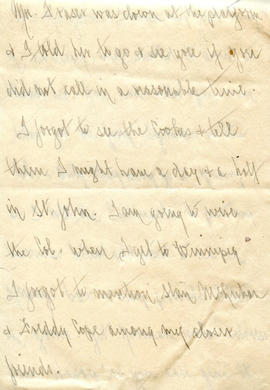 Mr. Fraser was down at the platform
& I told her to go & see you if you
did not call in a reasonable time.
I forgot to see the Cookes & tell
them I might have a day & a half
in St. John. I am going to wire
the Col. when I get to Winnipeg
I forgot to mention, Stan
& Freddy Cope among my closer
friends.